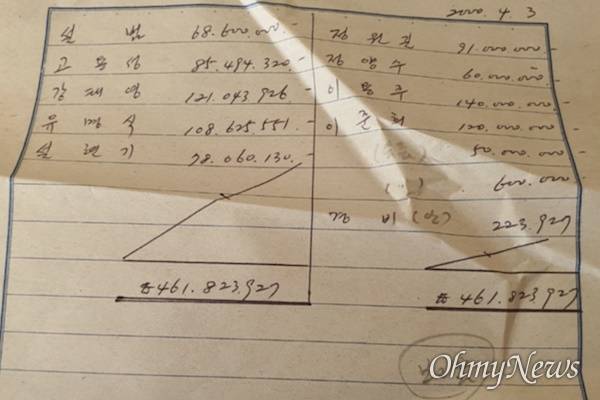 2000. 4. 3
설 범 68.600.000.-
85.494.320.-
강 재 영 121.043.926.-
유 경 식 108.625.551.-
설 현 기 78.060.130.-
₩461.823.927
정 원 길 91.000.000.-
정 영 수 60.000.000.-
이 용 주 140.000.000.-
이 준 희 120.000.000.-
50.000.000.-
(〃) 600.000.-
경 비 223.927
₩461.823.927
OhmyNews